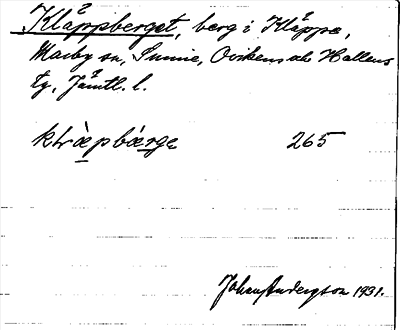 Kläppberget, berg i Kläppe,
Marby sn, Sunne, Ovikens och Hallens
tg, Jämtl. l.
265
Johan Anderzson 1931.